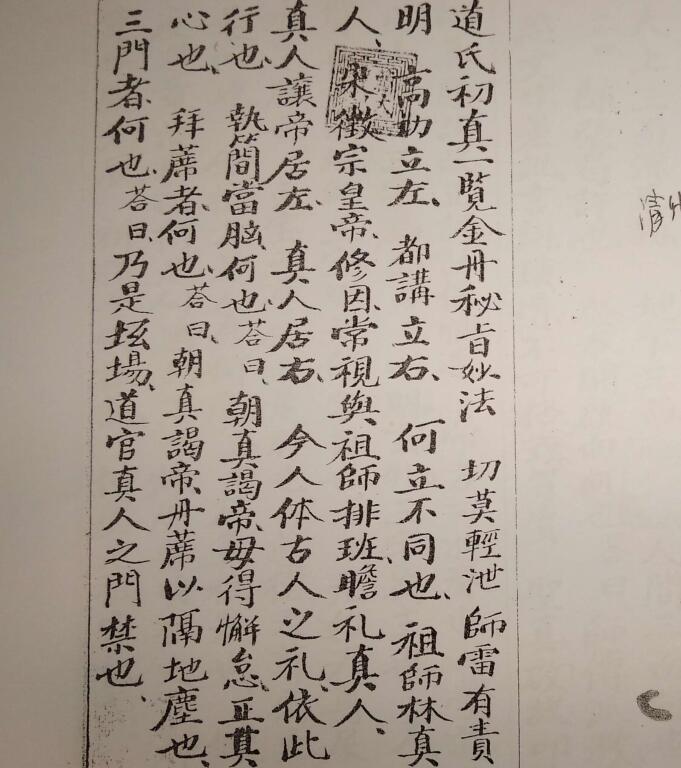 道氏初真一覽金丹秘旨妙法 切莫輕泄 師雷有責
明 高功立左、都講立右、何立不同也、祖師林真
人、宋徽宗皇帝、修因、常視與祖師排班、瞻礼真人、
真人讓帝居左、真人居右、今人体古人之礼、依此
行也、執簡當脑、何也、荅曰、朝真謁帝、毋得懈怠、正其
心也、拜蓆者、何也、荅曰、朝真謁帝、丹蓆以隔地塵也、
三門者、何也、荅曰、乃是坛場、道官真人之門禁也、